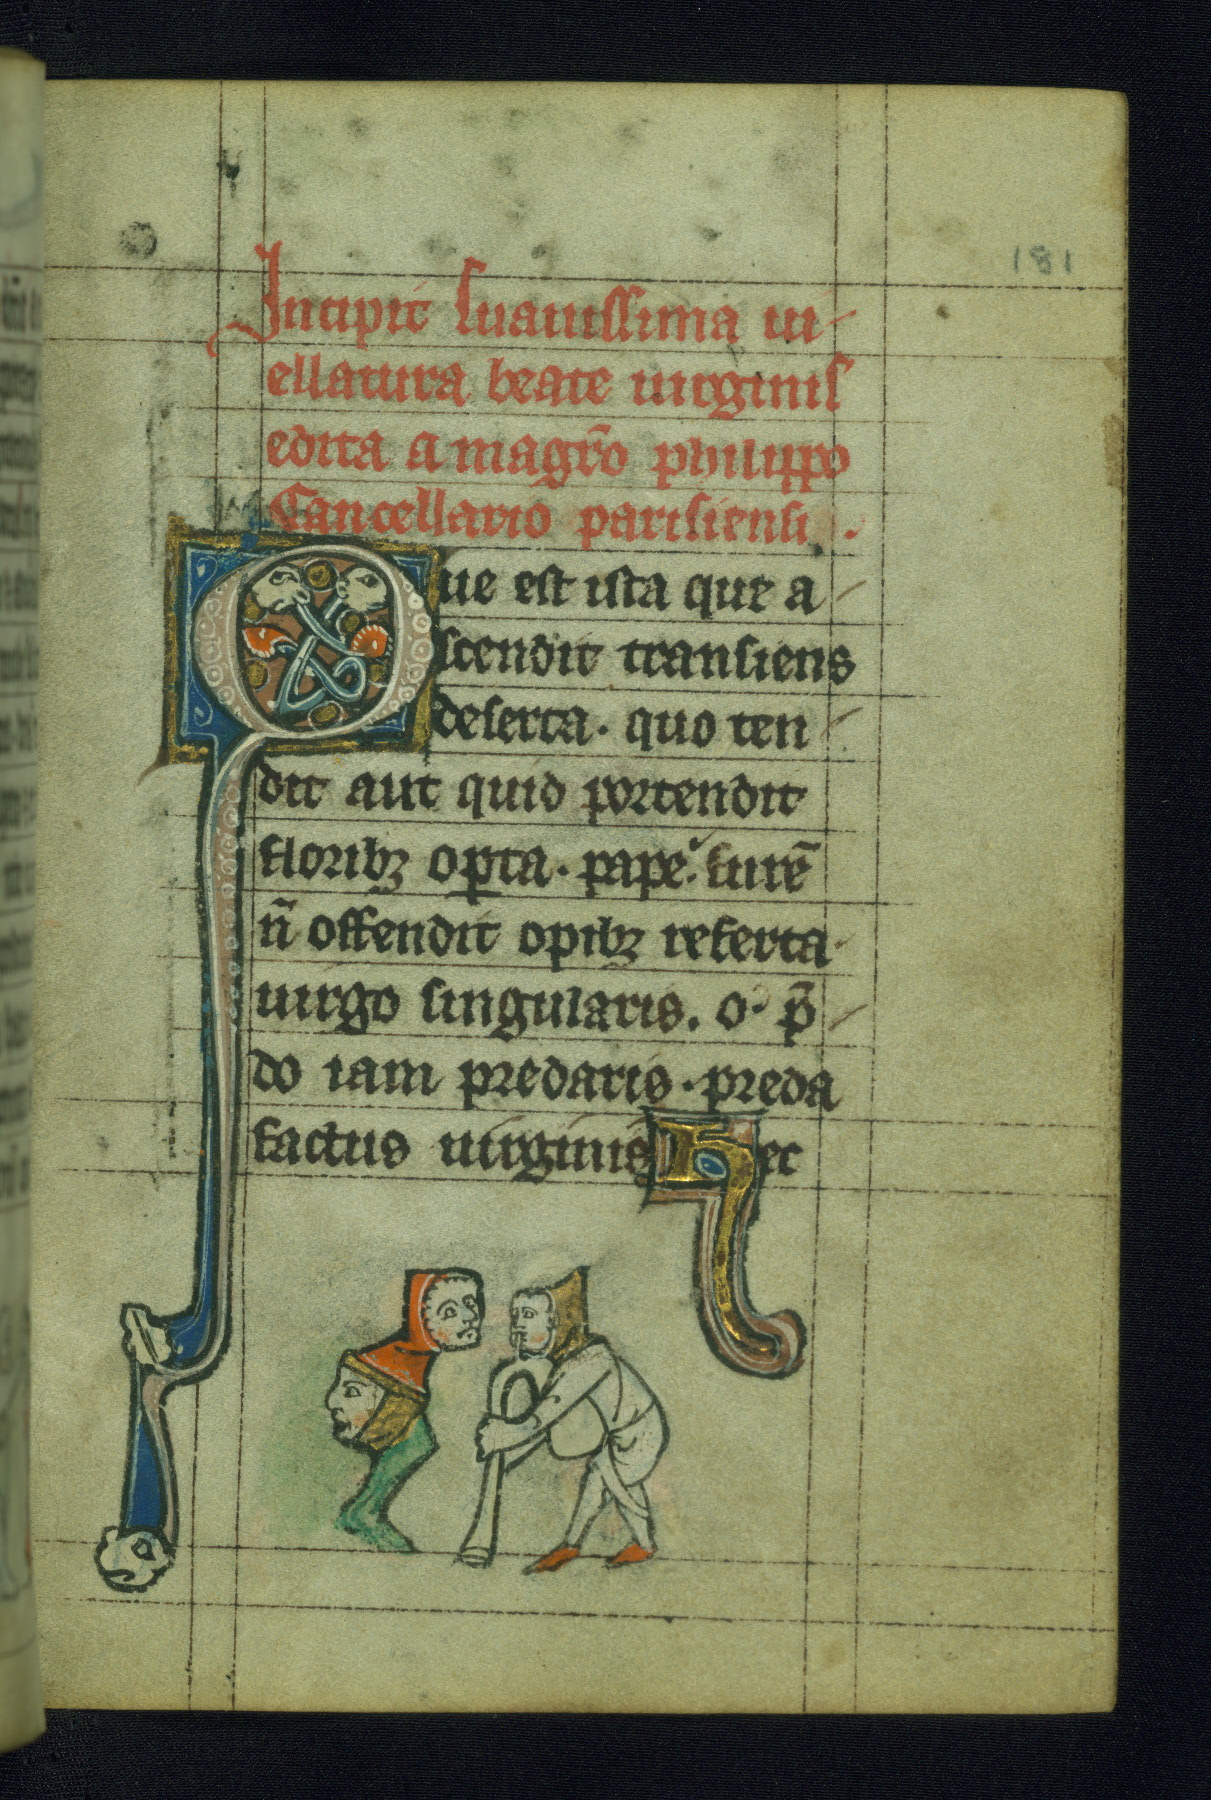 181
Incipit suauissima ui
ellatura beate uirginis
edita a magr̄o philippo
Cancellario parisiensi.
Que est ista que a
scendit transiens
deserta. quo ten
dit aut quid portendit
floribꝫ op̱ta. pape. turē
n̄ offendit opibꝫ referta
uirgo singularis. o. p̄
do iam predaris. preda
factus uirginis Hec